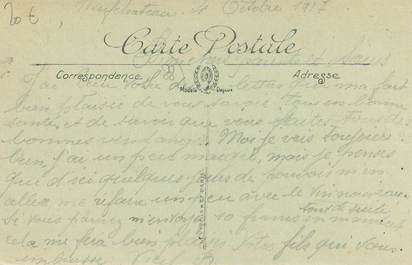 20 €
Neufchateau, le Octobre 1917
Carte Postale
Correspondance
Adresse
Modèle Déposé
J'ai bien votre lettre qui m'a fait
bien plaisir de vous que tous en bonne
santé, et de savoir que vous faites tous des
bonnes vendanges. Moi je vais toujours
bien, j'ai un peu maigri, mais je penses
que d'ici quelques jours de pouvoir m'en
aller me refaire un peu avec le vin nouveau.
Si vous pouvez m'envoyer 10 francs en mandat
tout de suite
cela me fera bien plaisir. Votre fils qui vous
embrasse